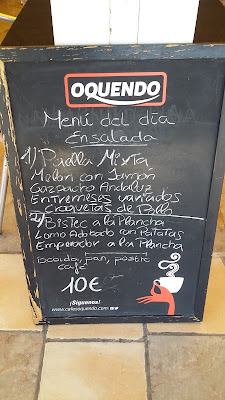 OQUENDO
Menú del día
Ensalada
1) Paella Mixta
Melon con Jamón
Gazpacho Andaluz
Entremeses variados
Croquetas de Pollo
2) Bistec a la Plancha
Lomo Adobado con Patatas
Emperador a la Plancha
bebida, pan, postre
café
10€
¡Síguenos!
www.cafesoquendo.com